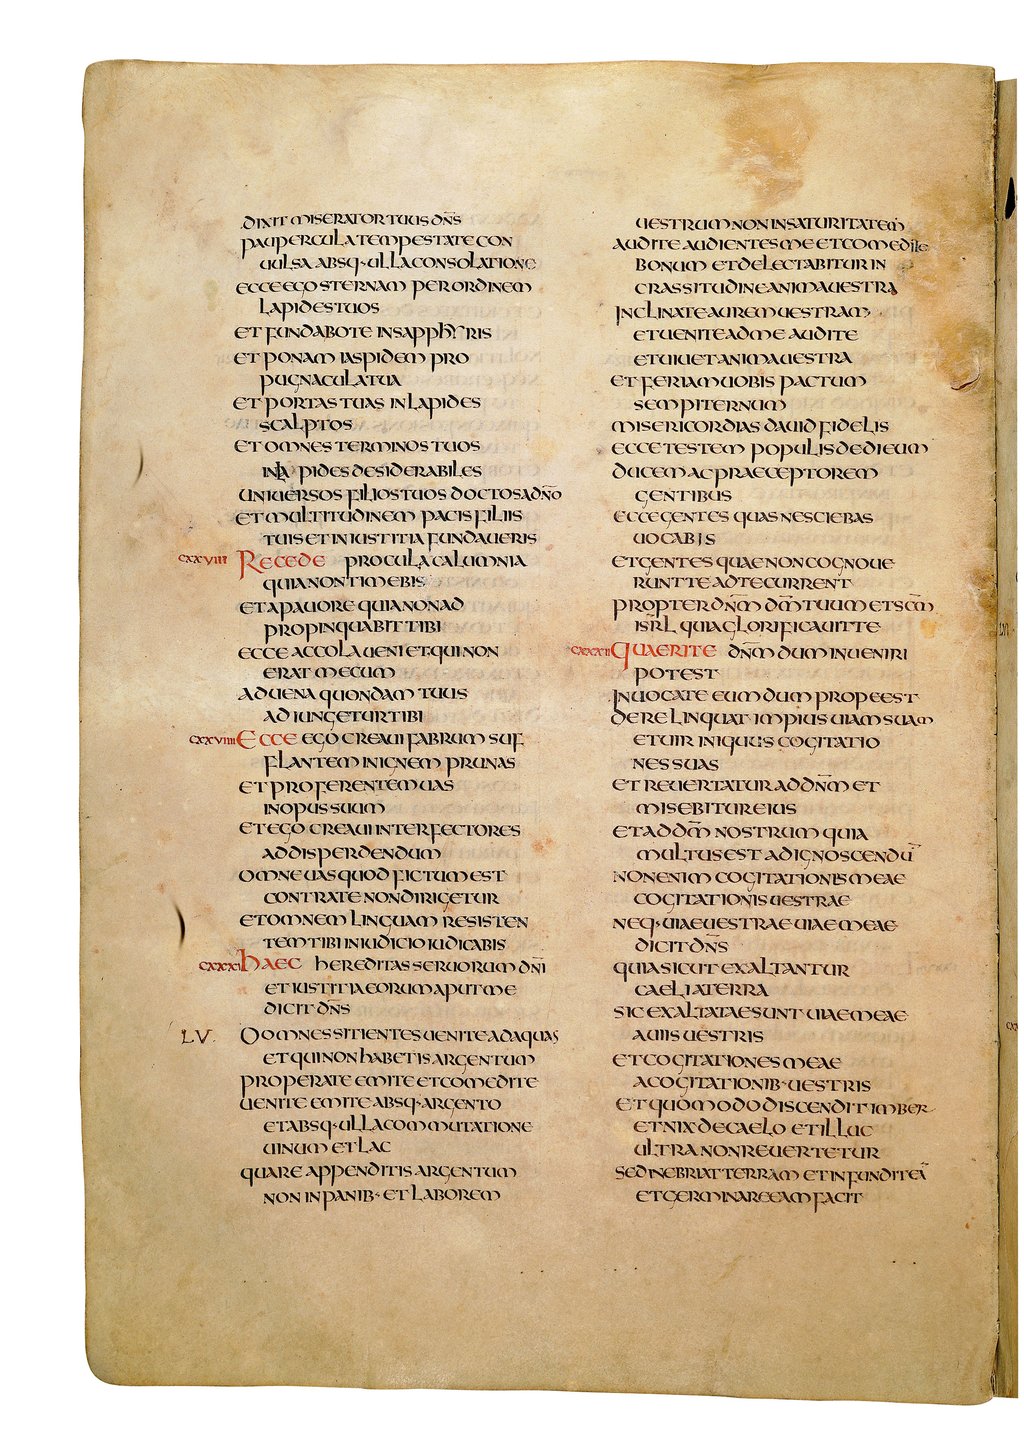 DIXIT MISERATOR TUUS DN̄S
PAUPERCULA TEMPESTATE CON
UULSA ABSQ· ULLA CONSOLATIONE
ECCE EGO STERNAM PER ORDINEM
LAPIDES TUOS
ET FUNDABO TE IN SAPPHYRIS
ET PONAM IASPIDEM PRO
PUGNACULA TUA
ET PORTAS TUAS IN LAPIDES
SCALPTOS
ET OMNES TERMINOS TUOS
IN LAPIDES DESIDERABILES
UNIUERSOS FILIOS TUOS DOCTOS A DN̄O
ET MULTITUDINEM PACIS FILIIS
TUIS ET IN IUSTITIA FUNDAUERIS
CXXVIII RECEDE PROCUL A CALUMNIA
QUIA NON TIMEBIS
ET A PAUORE QUIA NON AD
PROPINQUABIT TIBI
ECCE ACCOLA UENIET QUI NON
ERAT MECUM
ADUENA QUONDAM TUUS
ADIUNGETUR TIBI
CXXVIIII ECCE EGO CREAUI FABRUM SUF
FLANTEM IN IGNEM PRUNAS
ET PROFERENTEM UAS
IN OPUS SUUM
ET EGO CREAUI INTERFECTORES
AD DISPERDENDUM
OMNE UAS QUOD FICTUM EST
CONTRA TE NON DIRIGETUR
ET OMNEM LINGUAM RESISTEN
TEM TIBI IN IUDICIO IUDICABIS
CXXXI HAEC HEREDITAS SERUORUM DN̄I
ET IUSTITIA EORUM APUT ME
DICIT DN̄S
LV. O OMNES SITIENTES UENITE AD AQUAS
ET QUI NON HABETIS ARGENTUM
PROPERATE EMITE ET COMEDITE
UENITE EMITE ABSQ· ARGENTO
ET ABSQ· ULLA COMMUTATIONE
UINUM ET LAC
QUARE APPENDITIS ARGENTUM
NON IN PANIB· ET LABOREM
UESTRUM NON IN SATURITATEM
AUDITE AUDIENTES ME ET COMEDITE
BONUM ET DELECTABITUR IN
CRASSITUDINE ANIMA UESTRA
INCLINATE AUREM UESTRAM
ET UENITE AD ME AUDITE
ET UIUET ANIMA UESTRA
ET FERIAM UOBIS PACTUM
SEMPITERNUM
MISERICORDIAS DAUID FIDELIS
ECCE TESTEM POPULIS DEDI EUM
DUCEM AC PRAECEPTOREM
GENTIBUS
ECCE GENTES QUAS NESCIEBAS
UOCABIS
ET GENTES QUAE NON COGNOUE
RUNT TE AD TE CURRENT
PROPTER DN̄M DM̄ TUUM ET SCM̄
ISR̄L QUIA GLORIFICAUIT TE
CXXXII QUAERITE DN̄M DUM INUENIRI
POTEST
INUOCATE EUM DUM PROPE EST
DERELINQUAT IMPIUS UIAM SUAM
ET UIR INIQUUS COGITATIO
NES SUAS
ET REUERTATUR AD DN̄M ET
MISEBITUR EIUS
ET AD DM̄ NOSTRUM QUIA
MULTUS EST AD IGNOSCENDŪ
NON ENIM COGITATIONIS MEAE
COGITATIONIS UESTRAE
NEQ· UIAE UESTRAE UIAE MEAE
DICIT DN̄S
QUIA SICUT EXALTANTUR
CAELI A TERRA
SIC EXALTATAE SUNT UIAE MEAE
A UIIS UESTRIS
ET COGITATIONES MEAE
A COGITATIONIB· UESTRIS
ET QUOMODO DISCENDIT IMBER
ET NIX DE CAELO ET ILLUC
ULTRA NON REUERTETUR
SED INEBRIAT TERRAM ET INFUNDIT EĀ
ET GERMINARE EAM FACIT